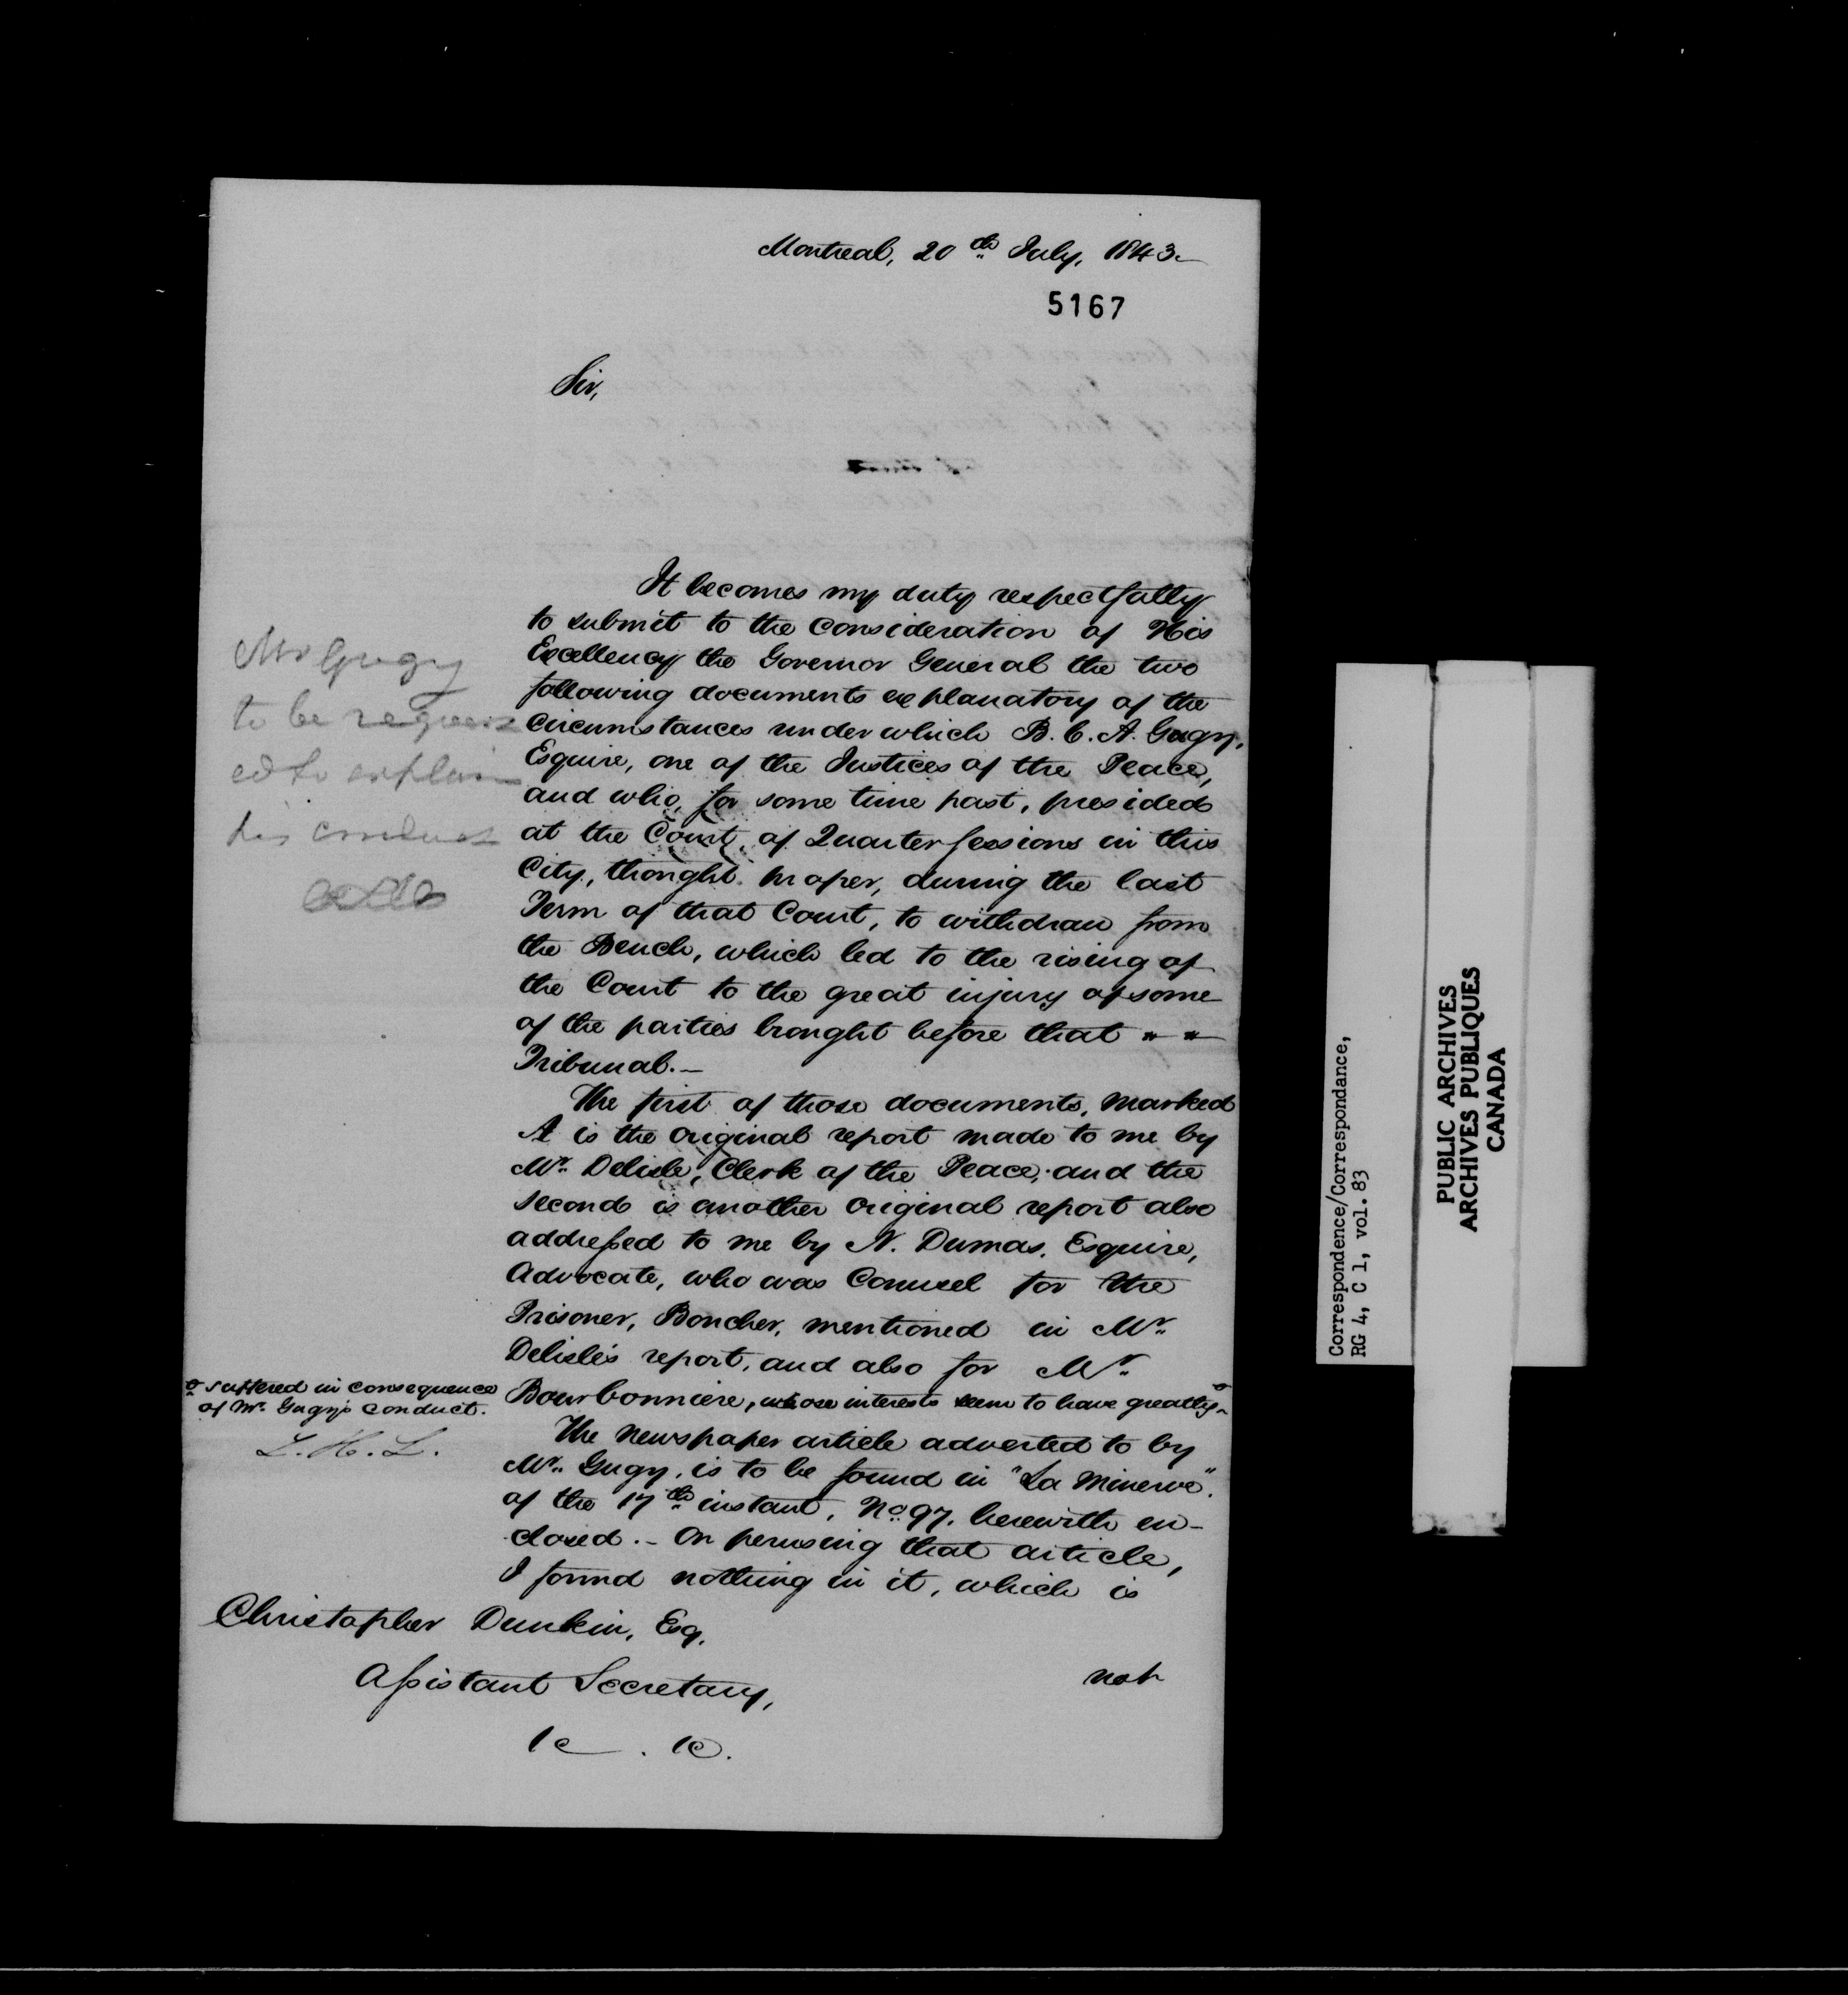 Montreal, 20th July, 1843.
5167
Sir,
It becomes my duty respectfully
to submit to the consideration of His
Excellency the Governor General the two
following documents explanatory of the
circumstances under which B. C. A. Gugy,
Esquire, one of the Justices of the Peace,
and who, for some time past, presided
at the Court of Quarter Sessions in this
City, thought proper, during the last
Term of that Court, to withdraw from
the Bench, which led to the rising of
the Court to the great injury of some
of the parties brought before that " "
Tribunal.—
Mr Gugy
to be request
ed to explain
his conduct
The first of those documents, marked
A is the original report made to me by
Mr. Delisle, Clerk of the Peace; and the
second is another original report also
addressed to me by N. Dumas, Esquire,
Advocate, who was Counsel for the
Prisoner, Boucher, mentioned in Mr.
Delisle's report, and also for Mr.
Bourbonniere, whose interests seem to have greatly
suffered in consequence
of Mr. Gugy's conduct.
L. H. L.
The newspaper article adverted to by
Mr. Gugy, is to be found in "La Minerve".
of the 17th instant, No. 97. herewith en-
closed.- On perusing that article,
I found nothing in it, which is
not
Christopher Dunkin, Esq.
Assistant Secretary,
&c. &c.
Correspondence/Correspondance,
RG 4, C 1, vol. 83
PUBLIC ARCHIVES
ARCHIVES PUBLIQUES
CANADA